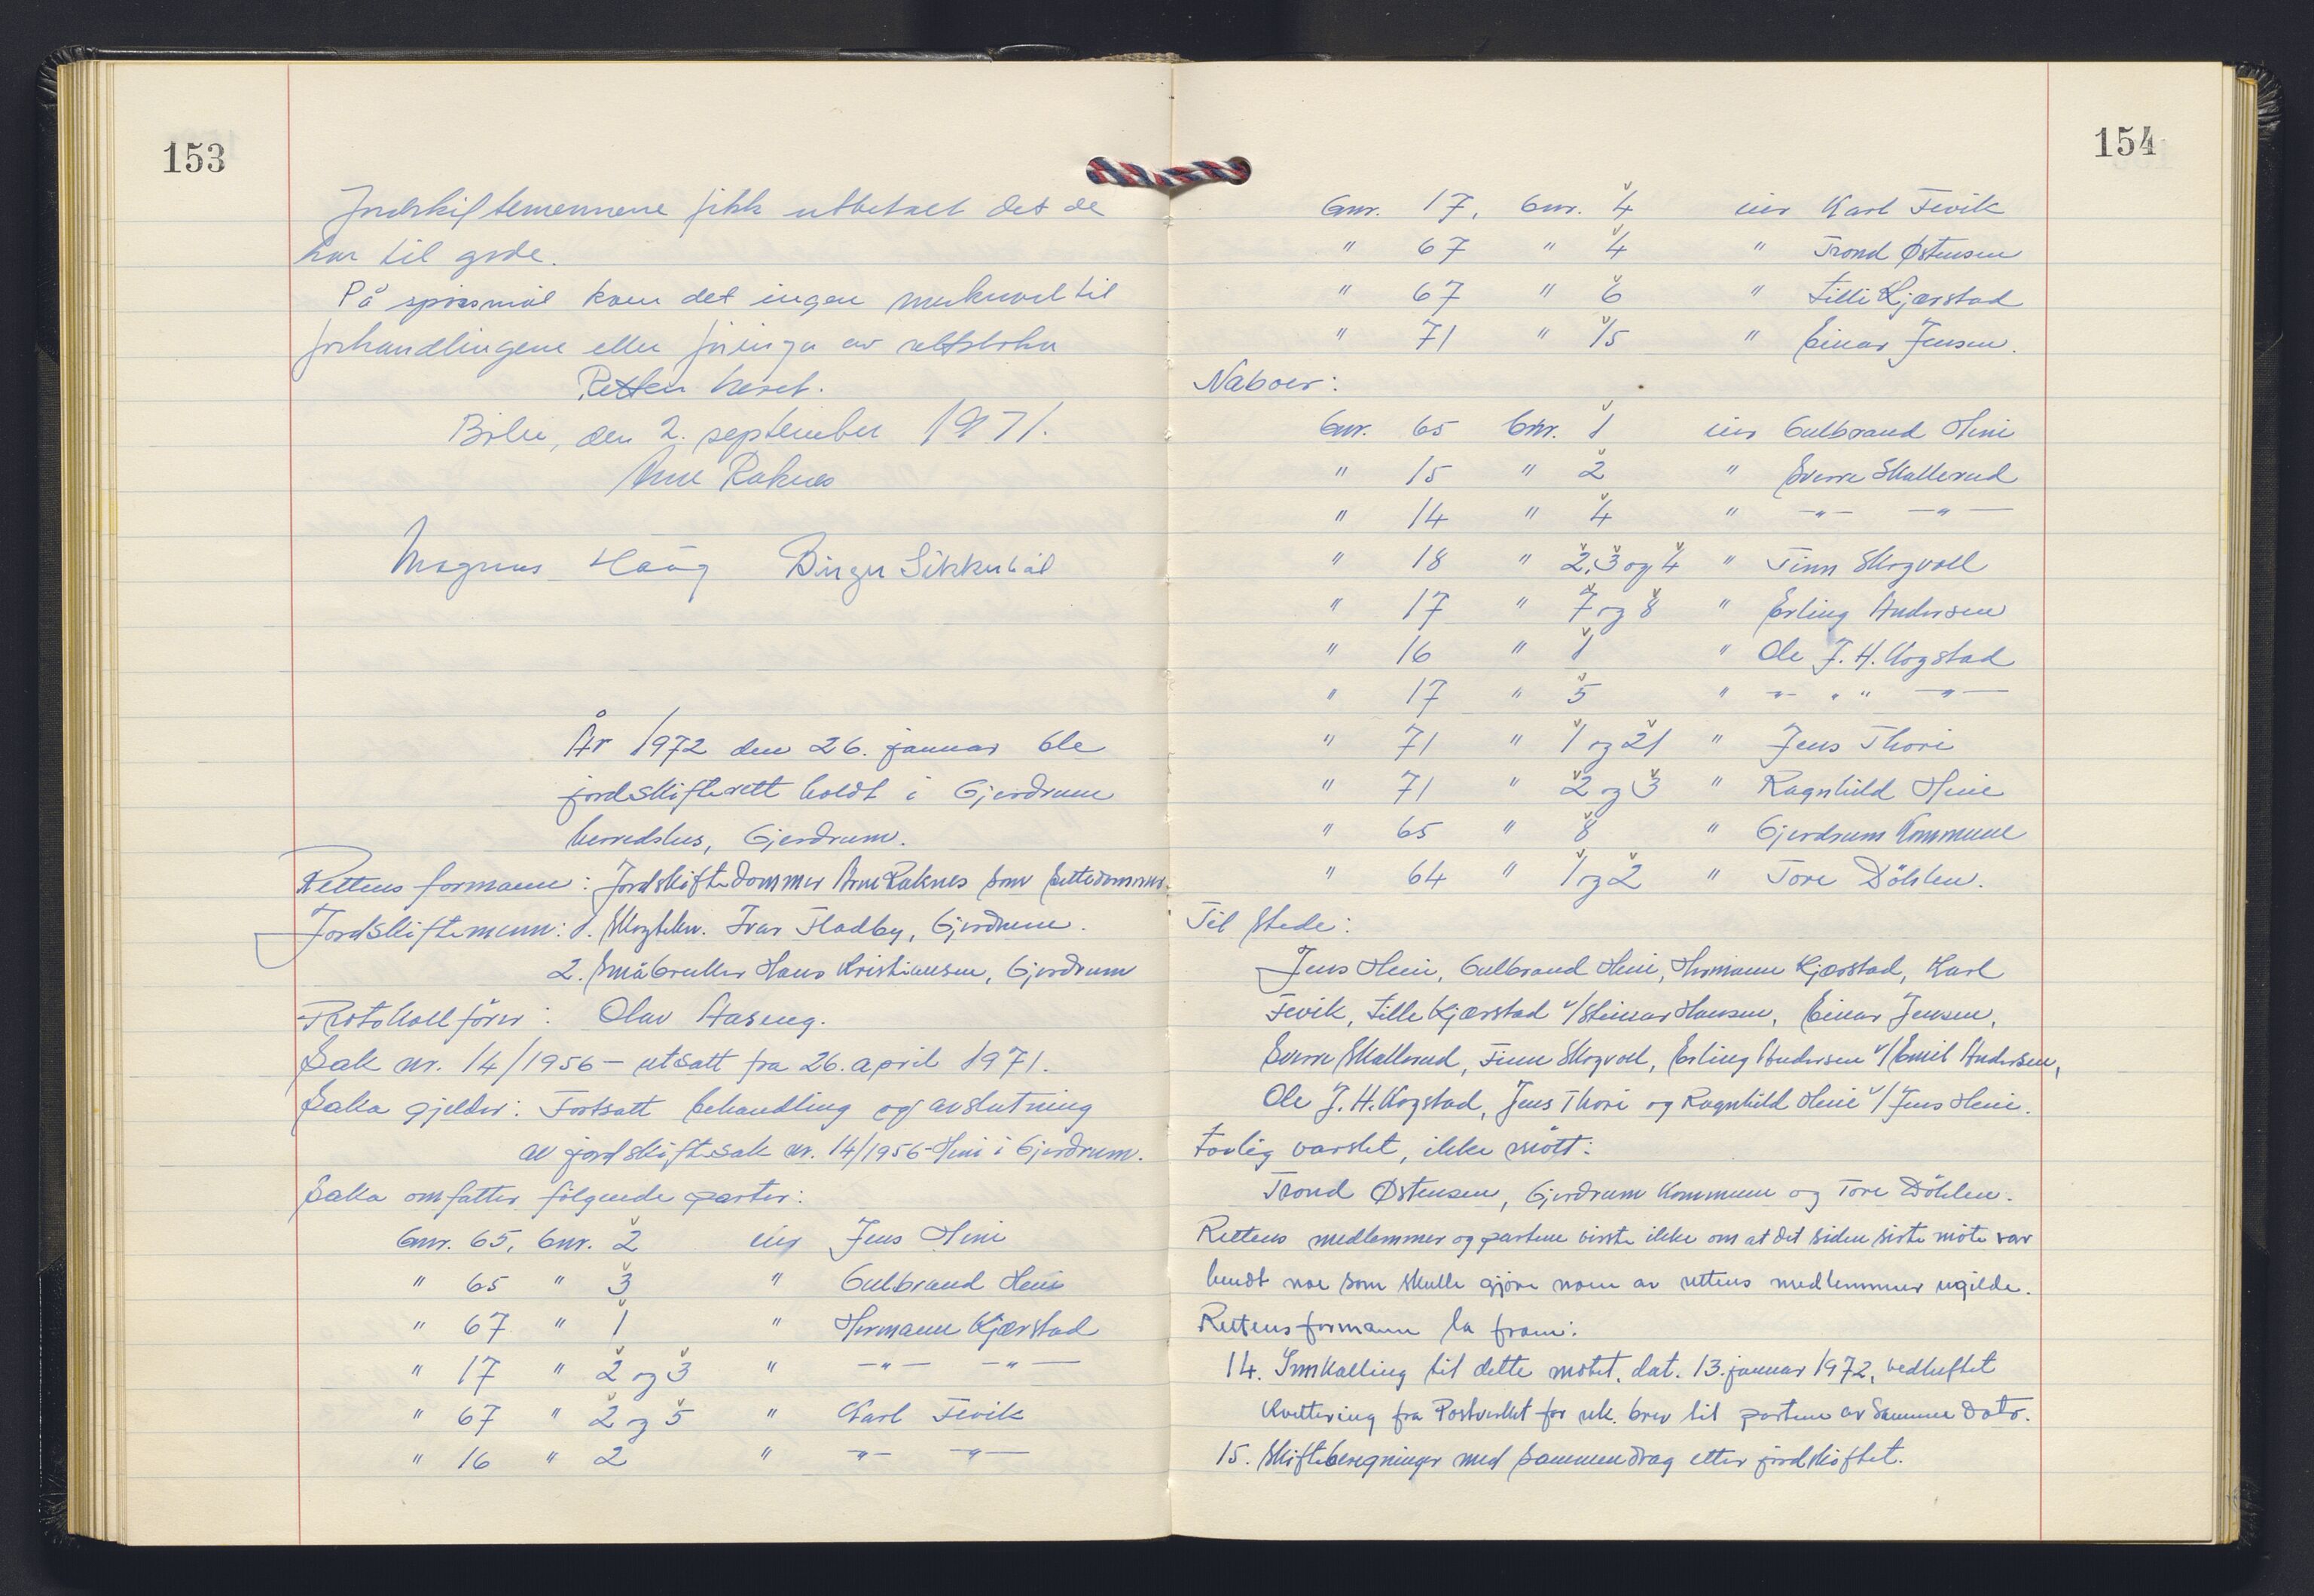 153
Jordskiftemennene fikk utbetalt det de
har til gode.
På spørsmål kom det ingen merknad til
forhandlingene eller føringa av rettsboka
Retten hevet.
den 2. september 1971.
Arne Raknes
Magnus Haug Birger
År 1972 den 26. januar ble
jordskifterett holdt i Gjerdrum
herredshus, Gjerdrum.
Rettens formann: Jordskiftedommer Arne Raknes som settedommer.
Jordskiftemenn: 1. Skogtekn. Ivar Fladby, Gjerdrum.
2. Småbruker Hans Kristiansen, Gjerdrum
Protokollfører: Olav Aaseng.
Sak nr. 14/1956 - utsatt fra 26. april 1971.
Saka gjelder: Fortsatt behandling og avslutning
av jordskiftesak nr. 14/1956 - Heni i Gjerdrum.
Saka omfatter følgende parter:
Gnr. 65, bnr. 2 eier Jens Heni
" 65 " 3 " Gulbrand Heni
" 67 " 1 " Hermann Kjærstad
" 17 " 2 og 3 " —"— —"—
" 67 " 2 og 5 " Karl Fevik
" 16 " 2 " —"— —"—
154
Gnr. 17, bnr. 4 eier Karl Fevik
" 67 " 4 " Trond Østensen
" 67 " 6 " Lilli Kjærstad
" 71 " 15 " Einar Jensen.
Naboer:
Gnr. 65 bnr. 1 eier Gulbrand Heni
" 15 " 2 " Sverre Skallerud
" 14 " 4 " —"— —"—
" 18 " 2, 3 og 4 " Finn Skogvoll
" 17 " 7 og 8 " Erling Andersen
" 16 " 1 " Ole J. H. Kogstad
" 17 " 5 " —"— " " —"—
" 71 " 1 og 21 " Jens Thori
" 71 " 2 og 3 " Ragnhild Heni
" 65 " 8 " Gjerdrum Kommune
" 64 " 1 og 2 " Tore Döhlen.
Til stede:
Jens Heni, Gulbrand Heni, Hermann Kjærstad, Karl
Fevik, Lilli Kjærstad v/Steinar Hansen, Einar Jensen,
Sverre Skallerud, Finn Skogvoll, Erling Andersen v/Emil Andersen,
Ole J. H. Kogstad, Jens Thori og Ragnhild Heni v/Jens Heni.
Lovlig varslet, ikke møtt:
Trond Østensen, Gjerdrum Kommune og Tore Döhlen.
Rettens medlemmer og partene visste ikke om at det siden siste møte var
hendt noe som skulle gjøre noen av rettens medlemmer ugilde.
Rettens formann la fram:
14. Innkalling til dette møtet, dat. 13. januar 1972, vedheftet
kvittering fra Postverket for rek. brev til partene av samme dato.
15. Skifteberegninger med sammendrag etter jordskiftet.